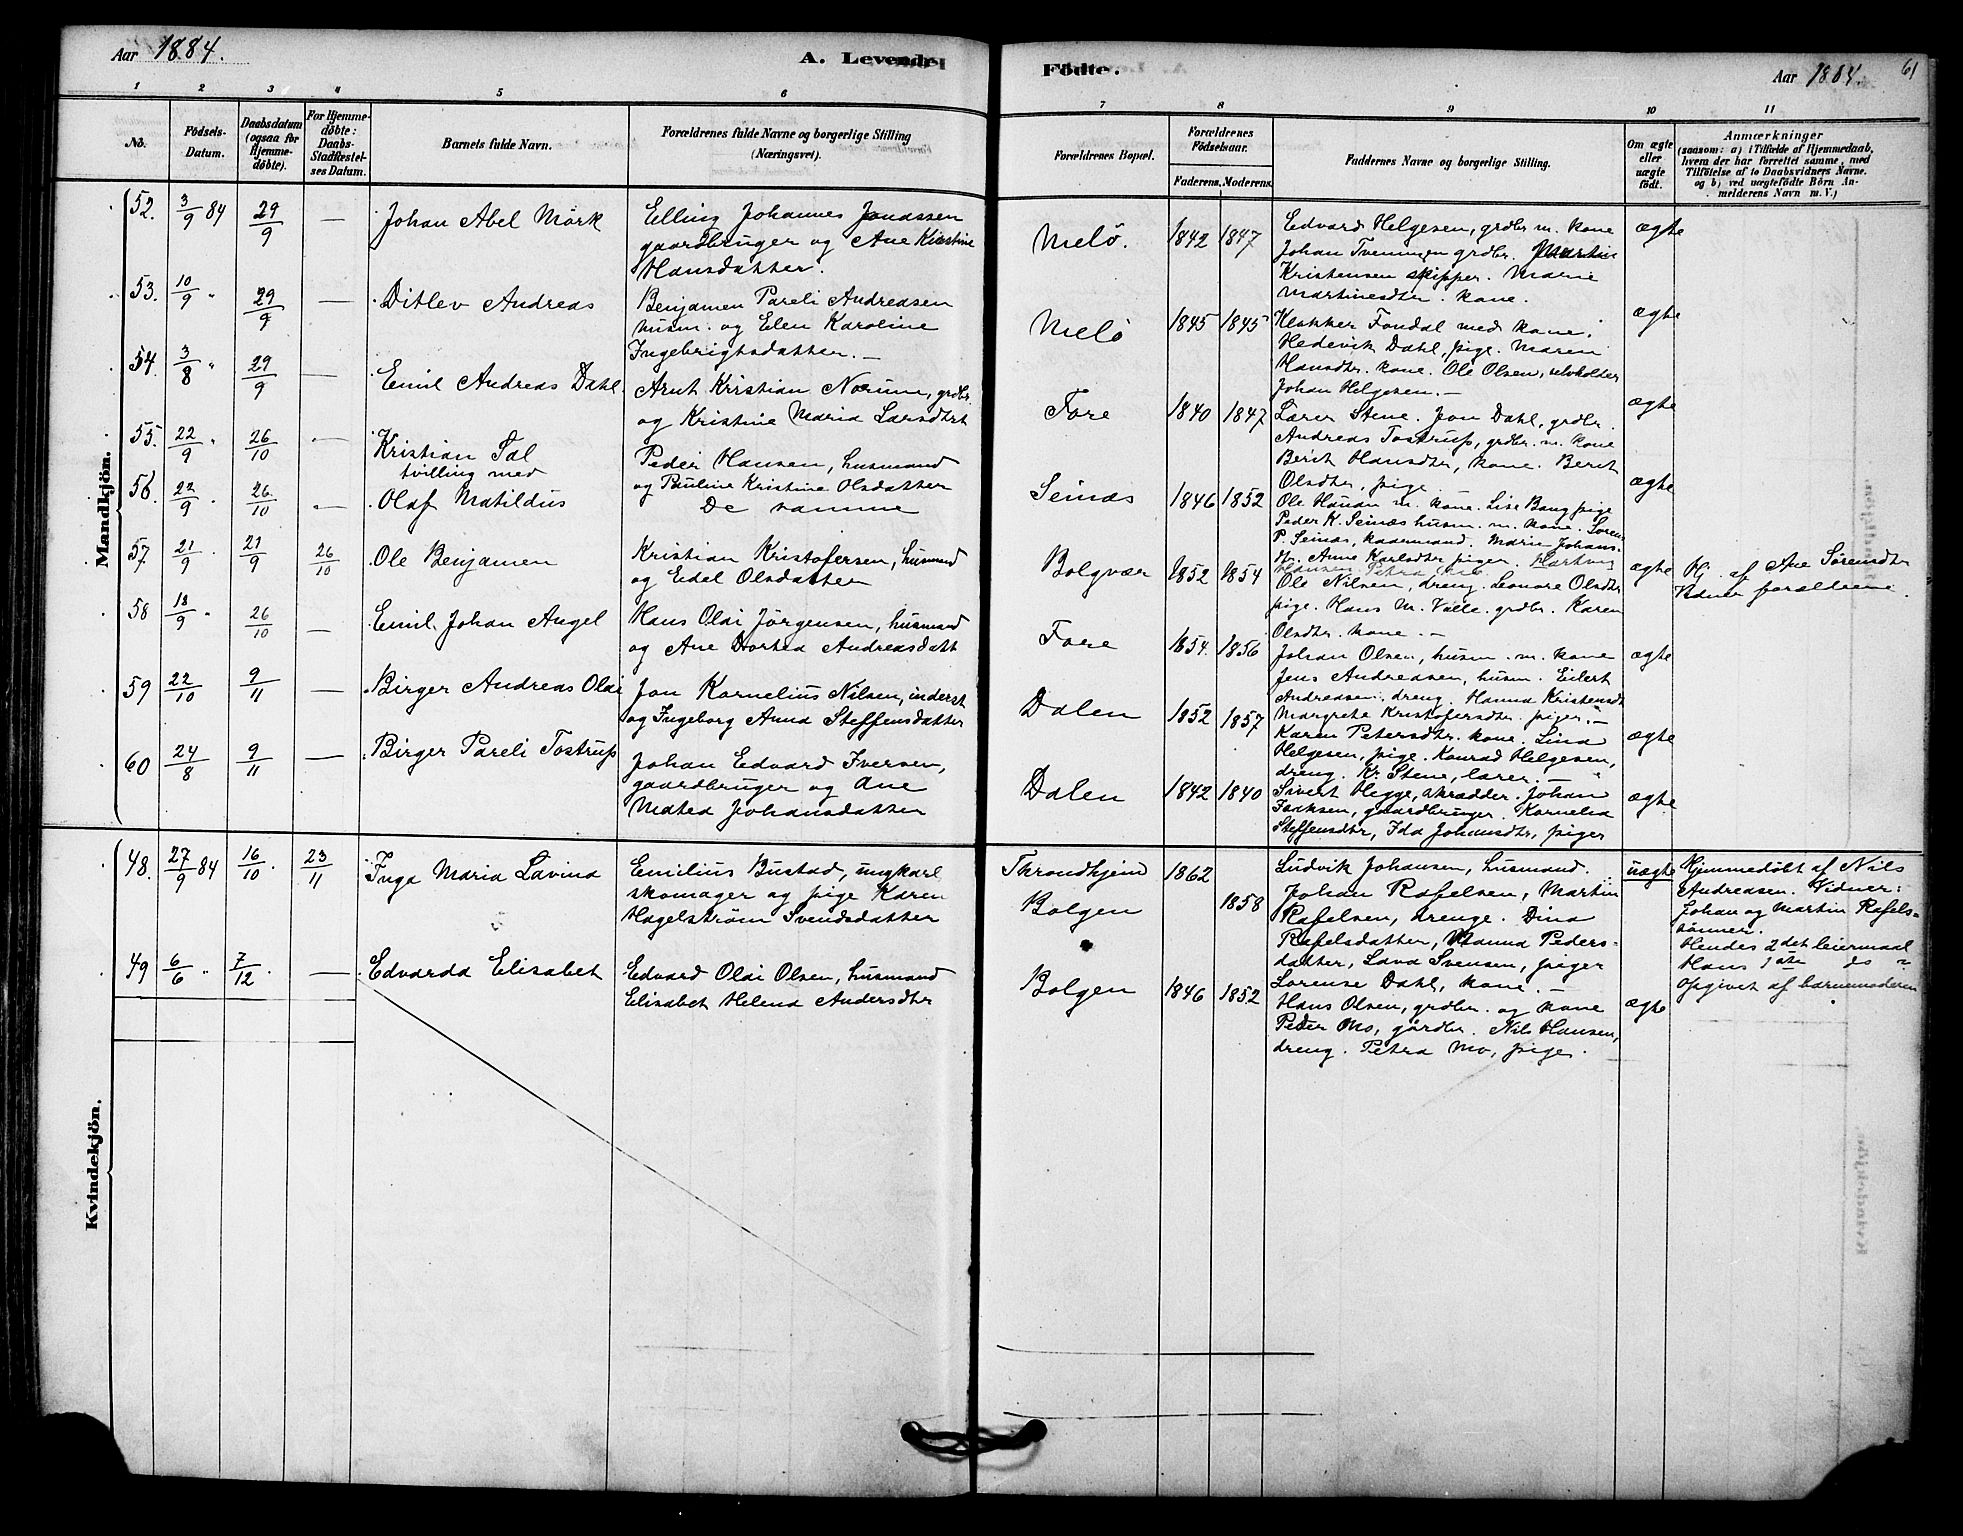 Aar 1884.
A. Levende
1 2 3 4 5 6
No.
Födsels-Datum.
Daabsdatum (ogsaa for Hjemmedöbte).
For Hjemmedöbte: Daabs-Stadfæstelses Datum.
Barnets fulde Navn.
Forældrenes fulde Navne og borgerlige Stilling (Næringsvei).
Mandkjön.
52. 3/9 84 29/9 — Johan Abel Mörk
Elling Johannes Jonassen
gaardbruger og Ane Kirstine
Hansdatter.
53. 10/9 " 29/9 — Ditlev Andreas
Benjamen Pareli Andreasen
husm. og Elen Karoline
Ingebrigtsdatter. —
54. 3/8 " 29/9 — Emil Andreas Dahl.
Arnt Kristian Norum, grdbr.
og Kristine Maria Larsdtrt
55. 22/9 " 26/10 — Kristian Tal
tvilling med
Peder Hansen, husmand
og Pauline Kristine Olsdatter
56. 22/9 . 26/10 — Olaf Matildus
De samme
57 21/9 . 21/9 26/10 Ole Benjamen
Kristian Kristofersen, husmand
og Edel Olsdatter
58 18/9 " 26/10 — Emil Johan Angel
Hans Oldi Jörgensen, husmand
og Ane Dortea Andreasdatt
59 22/10 9/11 — Birger Andreas Oldi
Jon Kornelius Nilsen, inderst
og Ingeborg Anna Steffensdatter
60 24/8 9/11 — Birger Pareli Tostrup
Johan Edvard Iversen,
gaardbruger og Ane
Matea Johansdatter
Kvindekjön.
48. 27/9 84 16/10 23/11 Inga Maria Lavina
Emilius Bustad, ungkarl
skomager og pige Karen
Hagelström Svendsdatter
49 6/6 " 7/12 . — Edvarda Elisabet
Edvard Oldi Olsen, husmand
Elisabet Helena Andersdtr
Födte.
Aar 1884.
61
7 8 9 10 11
Forældrenes Bopæl.
Forældrenes Födselsaar.
Faderens. Moderens.
Faddernes Navne og borgerlige Stilling.
Om ægte eller uægte födt.
Anmærkninger
(saasom: a) i Tilfælde af Hjemmedaab,
hvem der har forrettet samme, med
Tilföielse af to Daabsvidners Navne.
og b) ved uægtefödte Börn Anmelderens Navn m. V.)
Melö. 1842 1847
Edvard Helgesen, grdbr m. kone
Johan Tveningen grdbr. Martin
Kristensen skipper. Marie
Martinesdtr. kone.
ægte
Melö 1845 1845
Klokker Fondal med kone.
Hedevik Dahl, pige. Maren
Hansdtr. kone. Ole Olsen, selvholder
Johan Helgesen. —
ægte
Fore 1840 1847
Lærer Stene. Jon Dahl, grdbr.
Andreas Tostrup, grdbr. m. kone
Berit Hansdtr, kone. Berit
Olsdtr, pige
ægte
Seinæs 1846 1852
Ole Hauan m. kone. Lise Bang pige
Peder K. Seinæs husm. m. kone. Soren
P. Seinæs, kaarmand. Marie Johans-
dtr. Anne Karlsdtr piger. Hartvig
Hansen
ægte
Bolgvær 1852 1854
Ole Nilsen, dreng. Leonore Olsdtr
pige. Hans M. Valle. grdbr. Karen
Olsdtr. kone. —
ægte
Hj. af Ane Sörensdtr
Vidner forældrene.
Fore 1854. 1856
Johan Olsen, husm. m. kone
Jens Andreasen, husm. Eilert
Andreasen. dreng. Hanna Kristensdt
Margrete Kristofersdtr. piger. —
ægte
Dalen 1852 1857
Karen Petersdtr. kone. Lina
Helgesen, pige. Konrad Helgesen,
dreng. Kr. Stene, lærer. —
ægte
Dalen 1842 1840
Sivert Hegge, skrædder. Johan
Isaksen, gaardbruger. Kornelia
Steffensdtr, Ida Johansdtr, piger
ægte
Throndhjem 1862
Bolgen 1858
Ludvik Johansen, husmand.
Johan Rafelsen, Martin
Rafelsen, drenge. Dina
Rafelsdatter, Hanna Peders-
datter, Lava Svensen, piger
Lorense Dahl, kone. —
uægte
Hjemmedöbt af Nils
Andreasen. Vidner:
Johan og Martin Rafels-
sönner.
Hendes 2det leiermaal
Hans 1ste do "
opgivet af barnemoderen
Bolgen 1846 1852
Hans Olsen, grdbr. og kone
Peder Mo, gårdbr. Nils Hansen,
dreng. Petra Mo, pige.
ægte